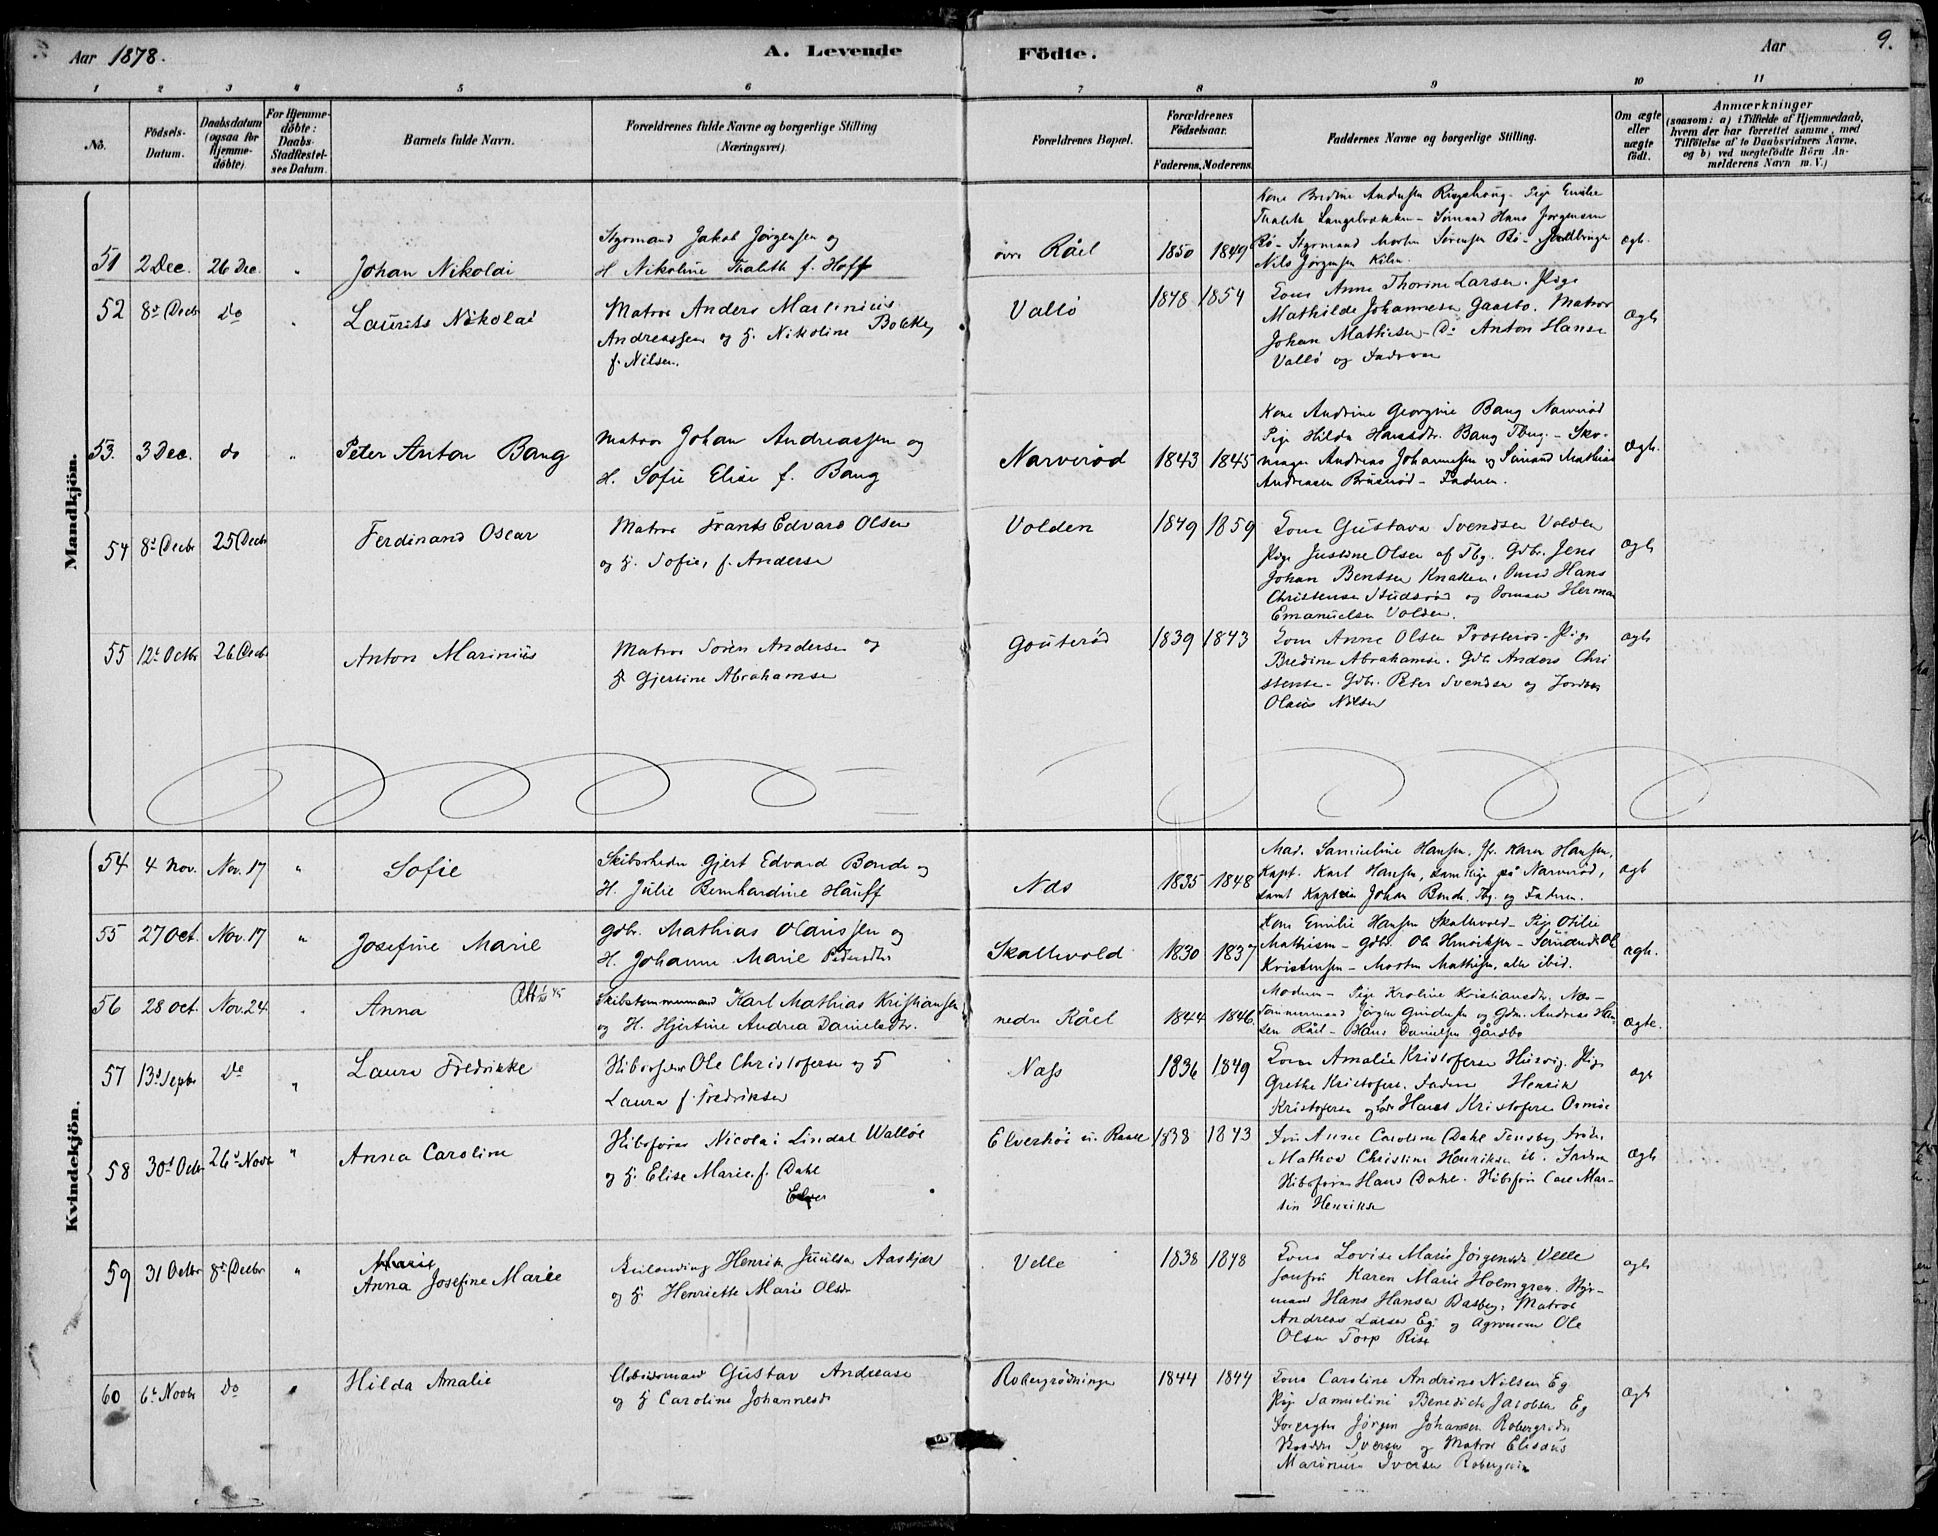 Aar 1878. A. Levende Födte. Aar 9.
1 2 3 4 5 6 7 8 9 10 11
No. Födsels-Datum. Daabsdatum (ogsaa for Hjemmedöbte) For Hjemmedöbte: Daabs-Stadfæstelses Datum. Barnets fulde Navn. Forældrenes fulde Navne og borgerlige Stilling (Næringsvei). Forældrenes Bopæl. Forældrenes Födselsaar. Faderens. Moderens. Faddernes Navne og borgerlige Stilling. Om ægte eller uægte födt. Anmærkninger (saasom: a) i Tilfælde af Hjemmedaab, hvem der har forrettet samme, med Tilföielse af to Daabsvidners Navne, og b) ved uægtefödte Börn Anmelderens Navn m. V.)
Mandkjön.
51 2 Dec. 26 Dec. " Johan Nikolai
Styrmand Jakob Jørgensen og
H. Nikoline Thalette f. Hoff
övre Råel 1850 1849
Kone Bredine Andersen Ringshaug. Pige Emilie
Thalette Langebrækken – Sømand Hans Jørgensen
Bø – Styrmand Morten Sørensen Bø –
Nils Jørgensen Kilen.
ægte.
52 8de Decbr Do " Laurits Nikolai
Matros Anders Martinius
Andreassen og H. Nikoline Bolette
f. Nilsen.
Vallö 1848 1854
Kone Anne Thorine Larsen. Pige
Mathilde Johannesen Gaasø. Matros
Johan Mathisen – Do Anton Hansen
Vallö og Faderen
Ægte
53. 3 Dec. do " Peter Anton Bang
Matros Johan Andreassen og
H. Sofie Elise f. Bang
Narverød 1843 1845
Kone Andrine Georgine Bang Narverød
Pige Hilda Hansdtr. Bang Tbrg. – Sko-
mager Andreas Johannesen og Sømand Mathias
Andreasen Bruserød – Faderen.
Ægte.
54 8de Decbr 25 Decbr Ferdinand Oscar
Matros Frants Edvard Olsen
og H. Sofie, f. Andersen
Volden 1849 1859
Kone Gustava Svendsen Volden
Pige Justine Olsen af Tbg. Gdbr. Jens
Johan Bentsen Knatten, Hans
Christensen Studsrød og Herman
Emanuelsen Volden.
Ægte
55 12te Octbr 26 Decbr Anton Marinius
Matros Sören Andersen og
H. Gjertine Abrahamsen
Gouterød 1839 1843
Kone Anne Olsen Prösterød – Pige
Bredine Abrahamsen. Gdbr. Anders Chri
stensen – Gdbr. Peter Svendsen og
Olaus Nilsen
ægte
Kvindekjön.
54 4 Nov. Nov. 17 " Sofie
Skibsrheder Gjert Edvard Bonde og
H. Julie Bernhardine Hauff
Næs 1835 1848
Mad. Samueline Hansen, Jfr. Karen Hansen,
Kapt. Karl Hansen, samtlige på Narverød,
samt Kaptein Johan Bonde. Tbg. og Faderen.
ægte
55 27 Oct. Nov. 17 " Josefine Marie
Gdbr. Mathias Olaussen og
H. Johanne Marie Pedersdtr
Skallevold 1830 1837
Kone Emilie Hansen Skallevold – Pige Otilie
Mathisen – Gdbr. Ole Henriksen – Sömand Ole
Kristensen – Morten Mathisen, alle ibid.
ægte.
56 28 Oct. Nov. 24. " Anna
Skibstømmermand Karl Mathias Kristiansen
og H. Hjertine Andrea Danielsdtr.
nedre Råel 1844 1846
Moderen – Pige Karoline Kristiansdtr. Næs –
Tømmermand Jörgen Gundersen og Gdm. Andreas Han-
sen Råel – Hans Danielsen Gårdbo
ægte.
57 13de Septbr Do " Laura Fredrikke
Skibsfører Ole Christofersen og H
Laura f. Fredriksen
Næss 1836 1849
Kone Amalie Kristofersen Husvig. Pige
Grethe Kristofersen. Faderen Henrik
Kristofersen og Hans Kristofersen Ormö
ægte
58 30te Octbr 26de Novbr " Anna Caroline
Skibsfører Nicolai Lindal Wallöe
og H. Elise Marie f. Dahl
Elverhöi u. Raael 1838 1843
Fru Anne Caroline Dahl Tönsberg Fröken
Mathea Christine Henriksen ib. Faderen
Skibsfører Hans Dahl. Skibsförer Carl Mar-
tin Henriksen
Ægte
59 31 Octbr 8de Decbr " Anna Josefine Marie
Henrik Juulsen Aaskjær
og H. Henriette Marie Olsen
Velle 1838 1848
Kone Lovise Marie Jörgensdtr Velle
Jomfru Karen Marie Holmgren. Styr-
mand Hans Hansen Basberg, Matros
Andreas Larsen Eg og Agronom Ole
Olsen Torp Rise
ægte
60 6te Novbr Do " Hilda Amalie
Arbeidsmand Gustav Andreasen
og H Caroline Johannesdtr
Robergrødningen 1844 1844
Kone Caroline Andrine Nilsen Eg
Pige Samueline Benedicte Jacobsen Eg
Jörgen Johansen Robergrødn
Iversen og Matros Elisæus
Marinius Iversen Robergrødn
Ægte